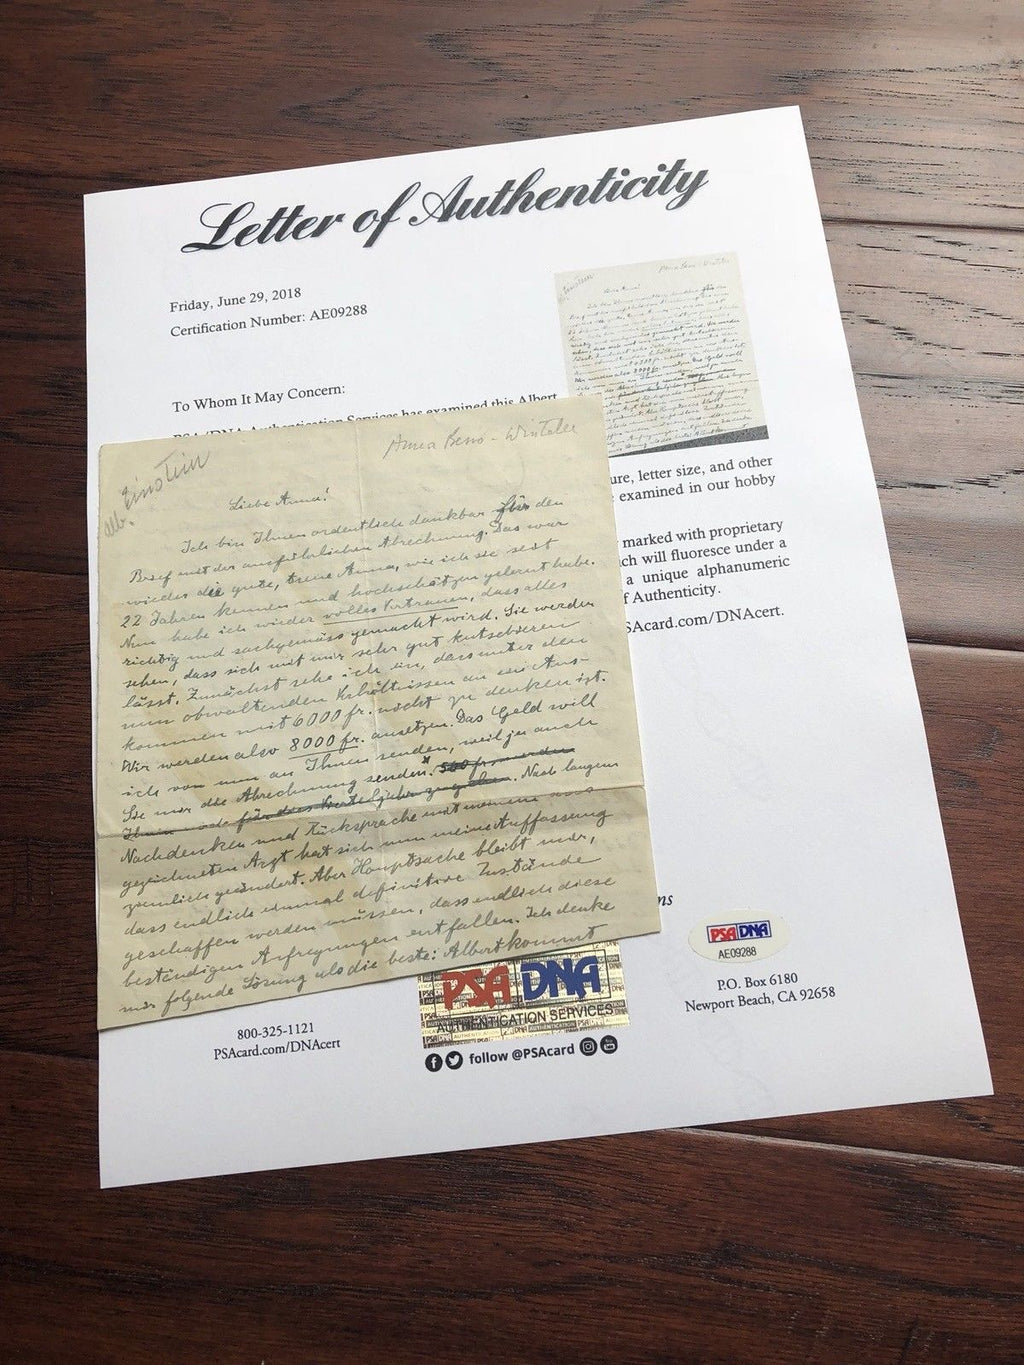 Letter of Authenticity
Friday, June 29, 2018
Certification Number: AE09288
To Whom It May Concern:
PSA/DNA Authentication Services has examined this Albert
ure, letter size, and other
examined in our hobby
marked with proprietary
ch will fluoresce under a
a unique alphanumeric
f Authenticity.
SAcard.com/DNAcert.
Alb. Einstein
Anna Besso-Winteler
Liebe Anna!
Ich bin Ihnen ordentlich dankbar für den
Brief mit der ausführlichen Abrechnung. Das war
wieder die gute, treue Anna, wie ich sie seit
22 Jahren kennen und hochschätzen gelernt habe.
Nun habe ich wieder volles Vertrauen, dass alles
richtig und sachgemäss gemacht wird. Sie werden
sehen, dass sich mit mir sehr gut kutschieren
lässt. Zunächst sehe ich ein, dass unter den
nun obwaltenden Verhältnissen an ein Aus-
kommen mit 6000 fr. nicht zu denken ist.
Wir werden also 8000 fr. ansetzen. Das Geld will
ich von nun an Ihnen senden, weil ja auch
Sie mir die Abrechnung senden. 500 fr. werden
Ihnen für das Vierteljahr zugehen. Nach langem
Nachdenken und Rücksprache mit meinem aus
gezeichneten Arzt hat sich nun meine Auffassung
ziemlich geändert. Aber Hauptsache bleibt mir,
dass endlich einmal definitive Zustände
geschaffen werden müssen, dass endlich diese
beständigen Aufregungen entfallen. Ich denke
mir folgende Lösung als die beste: Albert kommt
ns
PSA DNA
AE09288
P.O. Box 6180
Newport Beach, CA 92658
PSA DNA
AUTHENTICATION SERVICES
800-325-1121
PSAcard.com/DNAcert
follow @PSAcard